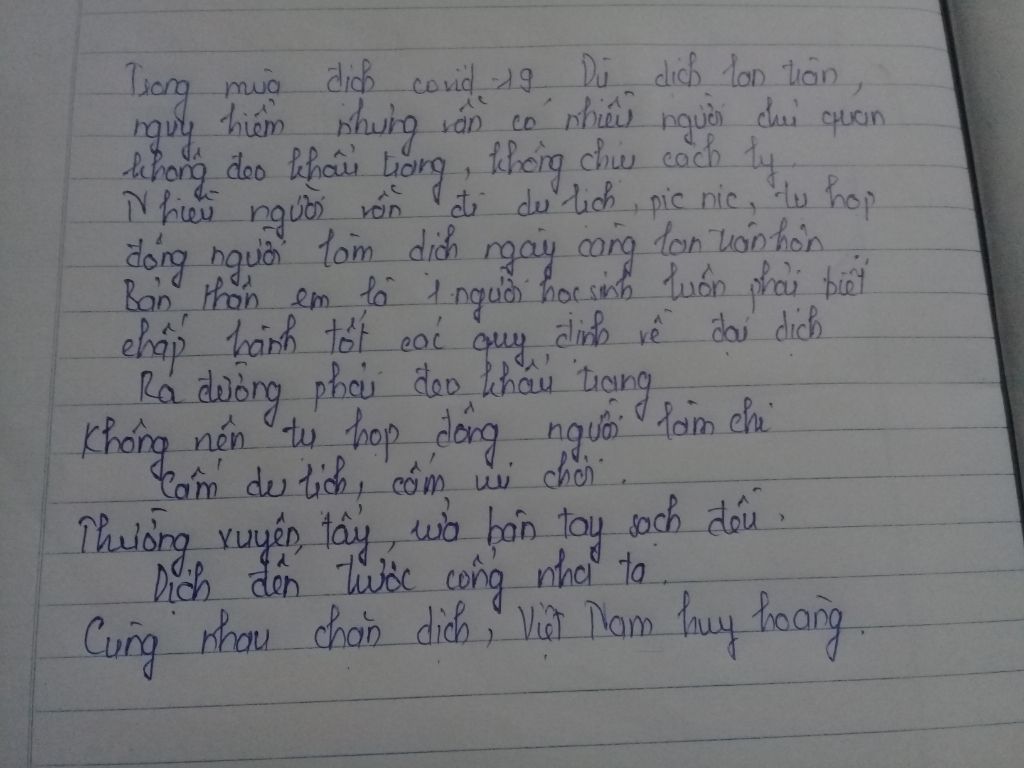 Trong mùa dịch covid -19 Dù dịch lan tràn,
nguy hiểm nhưng vẫn có nhiều người chủ quan
không đeo khẩu trang, không chịu cách ly.
Nhiều người vẫn đi du lịch, pic nic, tụ họp
đông người làm dịch ngày càng lan tràn hơn
Bản thân em là 1 người học sinh luôn phải biết
chấp hành tốt các quy định về đại dịch
Ra đường phải đeo khẩu trang
Không nên tụ họp đông người làm chi
Cấm du lịch, cấm vui chơi.
Thường xuyên, tẩy, rửa bàn tay sạch đều.
Dịch đến trước cổng nhà ta.
Cùng nhau chặn dịch, Việt Nam huy hoàng.